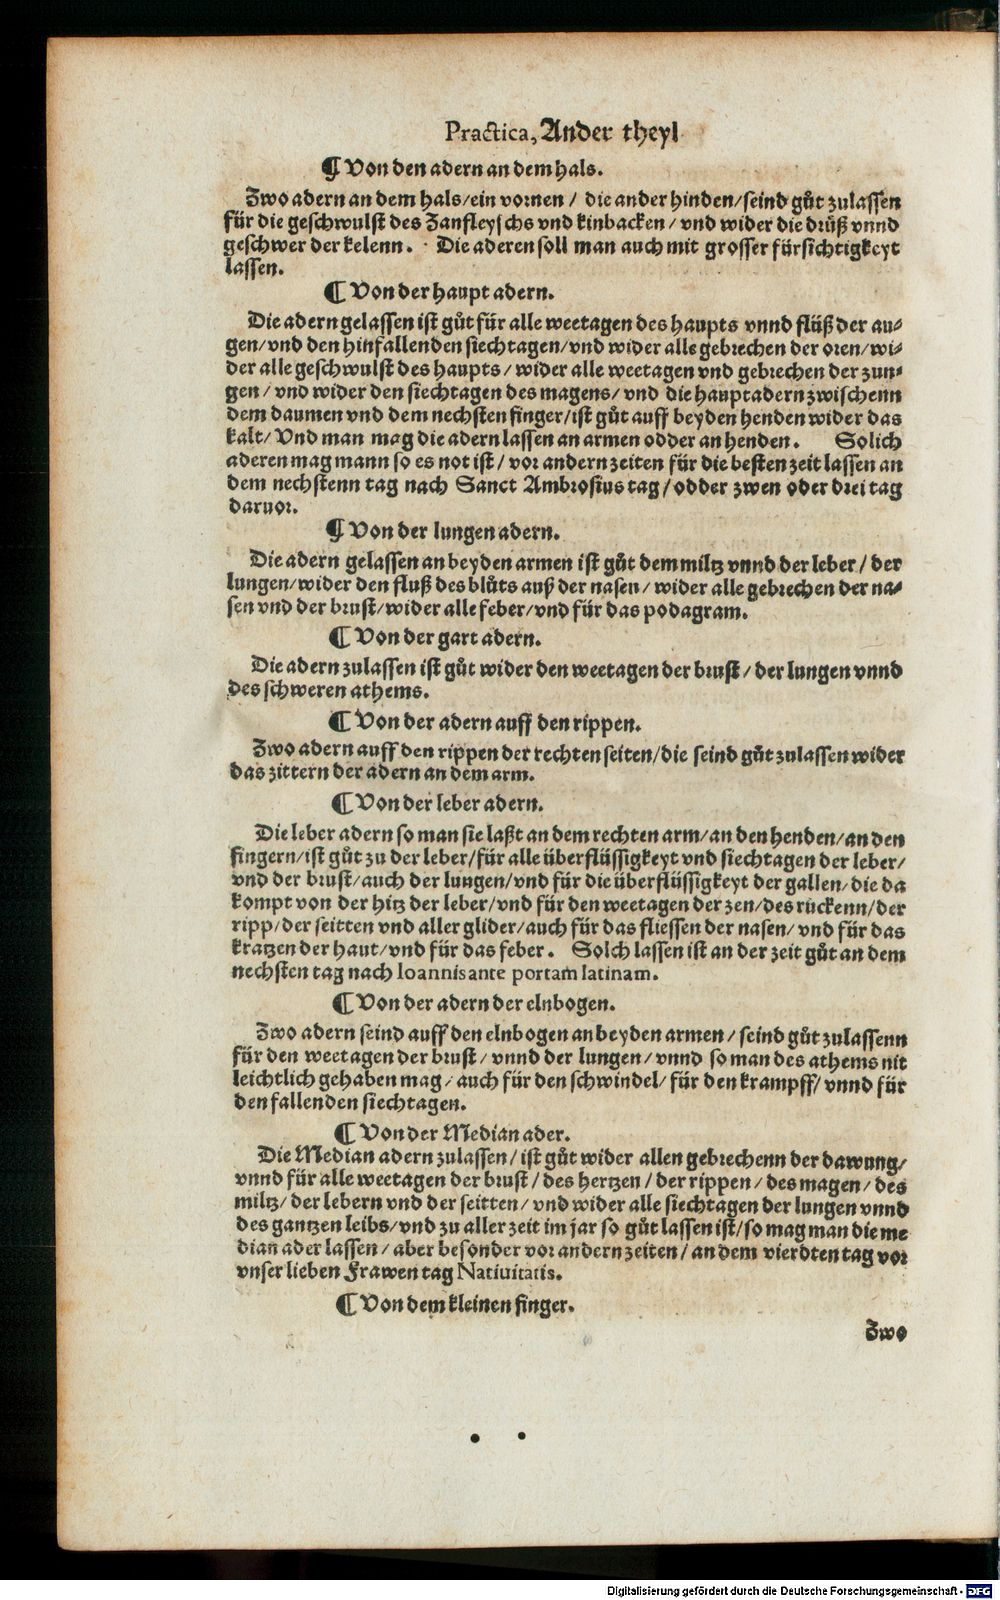 Practica, Ander theyl
¶ Von den adern an dem hals.
Zwo adern an dem hals/ein vornen / die ander hinden/seind gůt zulassen
für die geschwulst des Zanfleyschs vnd kinbacken / vnd wider die drüß vnnd
geschwer der kelenn. Die aderen soll man auch mit grosser fürsichtigkeyt
lassen.
¶ Von der haupt adern.
Die adern gelassen ist gůt für alle weetagen des haupts vnnd flüß der au⸗
gen/vnd den hinfallenden siechtagen/vnd wider alle gebrechen der oren/wi⸗
der alle geschwulst des haupts / wider alle weetagen vnd gebrechen der zun⸗
gen / vnd wider den siechtagen des magens/ vnd die hauptadern zwischenn
dem daumen vnd dem nechsten finger/ist gůt auff beyden henden wider das
kalt/ Vnd man mag die adern lassen an armen odder an henden. Solich
aderen mag mann so es not ist / vor andern zeiten für die besten zeit lassen an
dem nechstenn tag nach Sanct Ambrosius tag / odder zwen oder drei tag
daruor.
¶ Von der lungen adern.
Die adern gelassen an beyden armen ist gůt dem miltz vnnd der leber / der
lungen/wider den fluß des blůts auß der nasen / wider alle gebrechen der na⸗
sen vnd der brust/wider alle feber/vnd für das podagram.
¶ Von der gart adern.
Die adern zulassen ist gůt wider den weetagen der brust / der lungen vnnd
des schweren athems.
¶ Von der adern auff den rippen.
Zwo adern auff den rippen der rechten seiten/die seind gůt zulassen wider
das zittern der adern an dem arm.
¶ Von der leber adern.
Die leber adern so man sie laßt an dem rechten arm/an den henden/an den
fingern/ist gůt zu der leber/für alle überflüssigkeyt vnd siechtagen der leber/
vnd der brust/auch der lungen/vnd für die überflüssigkeyt der gallen/die da
kompt von der hitz der leber/vnd für den weetagen der zen/des rückenn/der
ripp/der seitten vnd aller glider/auch für das fliessen der nasen/ vnd für das
kratzen der haut/vnd für das feber. Solch lassen ist an der zeit gůt an dem
nechsten tag nach Ioannis ante portam latinam.
¶ Von der adern der elnbogen.
Zwo adern seind auff den elnbogen an beyden armen / seind gůt zulassenn
für den weetagen der brust / vnnd der lungen / vnnd so man des athems nit
leichtlich gehaben mag / auch für den schwindel / für den krampff/ vnnd für
den fallenden siechtagen.
¶ Von der Median ader.
Die Median adern zulassen / ist gůt wider allen gebrechenn der dawung/
vnnd für alle weetagen der brust / des hertzen / der rippen / des magen / des
miltz / der lebern vnd der seitten / vnd wider alle siechtagen der lungen vnnd
des gantzen leibs/vnd zu aller zeit im jar so gůt lassen ist/so mag man die me
dian ader lassen / aber besonder vor andern zeiten / an dem vierdten tag vor
vnser lieben Frawen tag Natiuitatis.
¶ Von dem kleinen finger.
Zwo
Digitalisierung gefördert durch die Deutsche Forschungsgemeinschaft - DFG